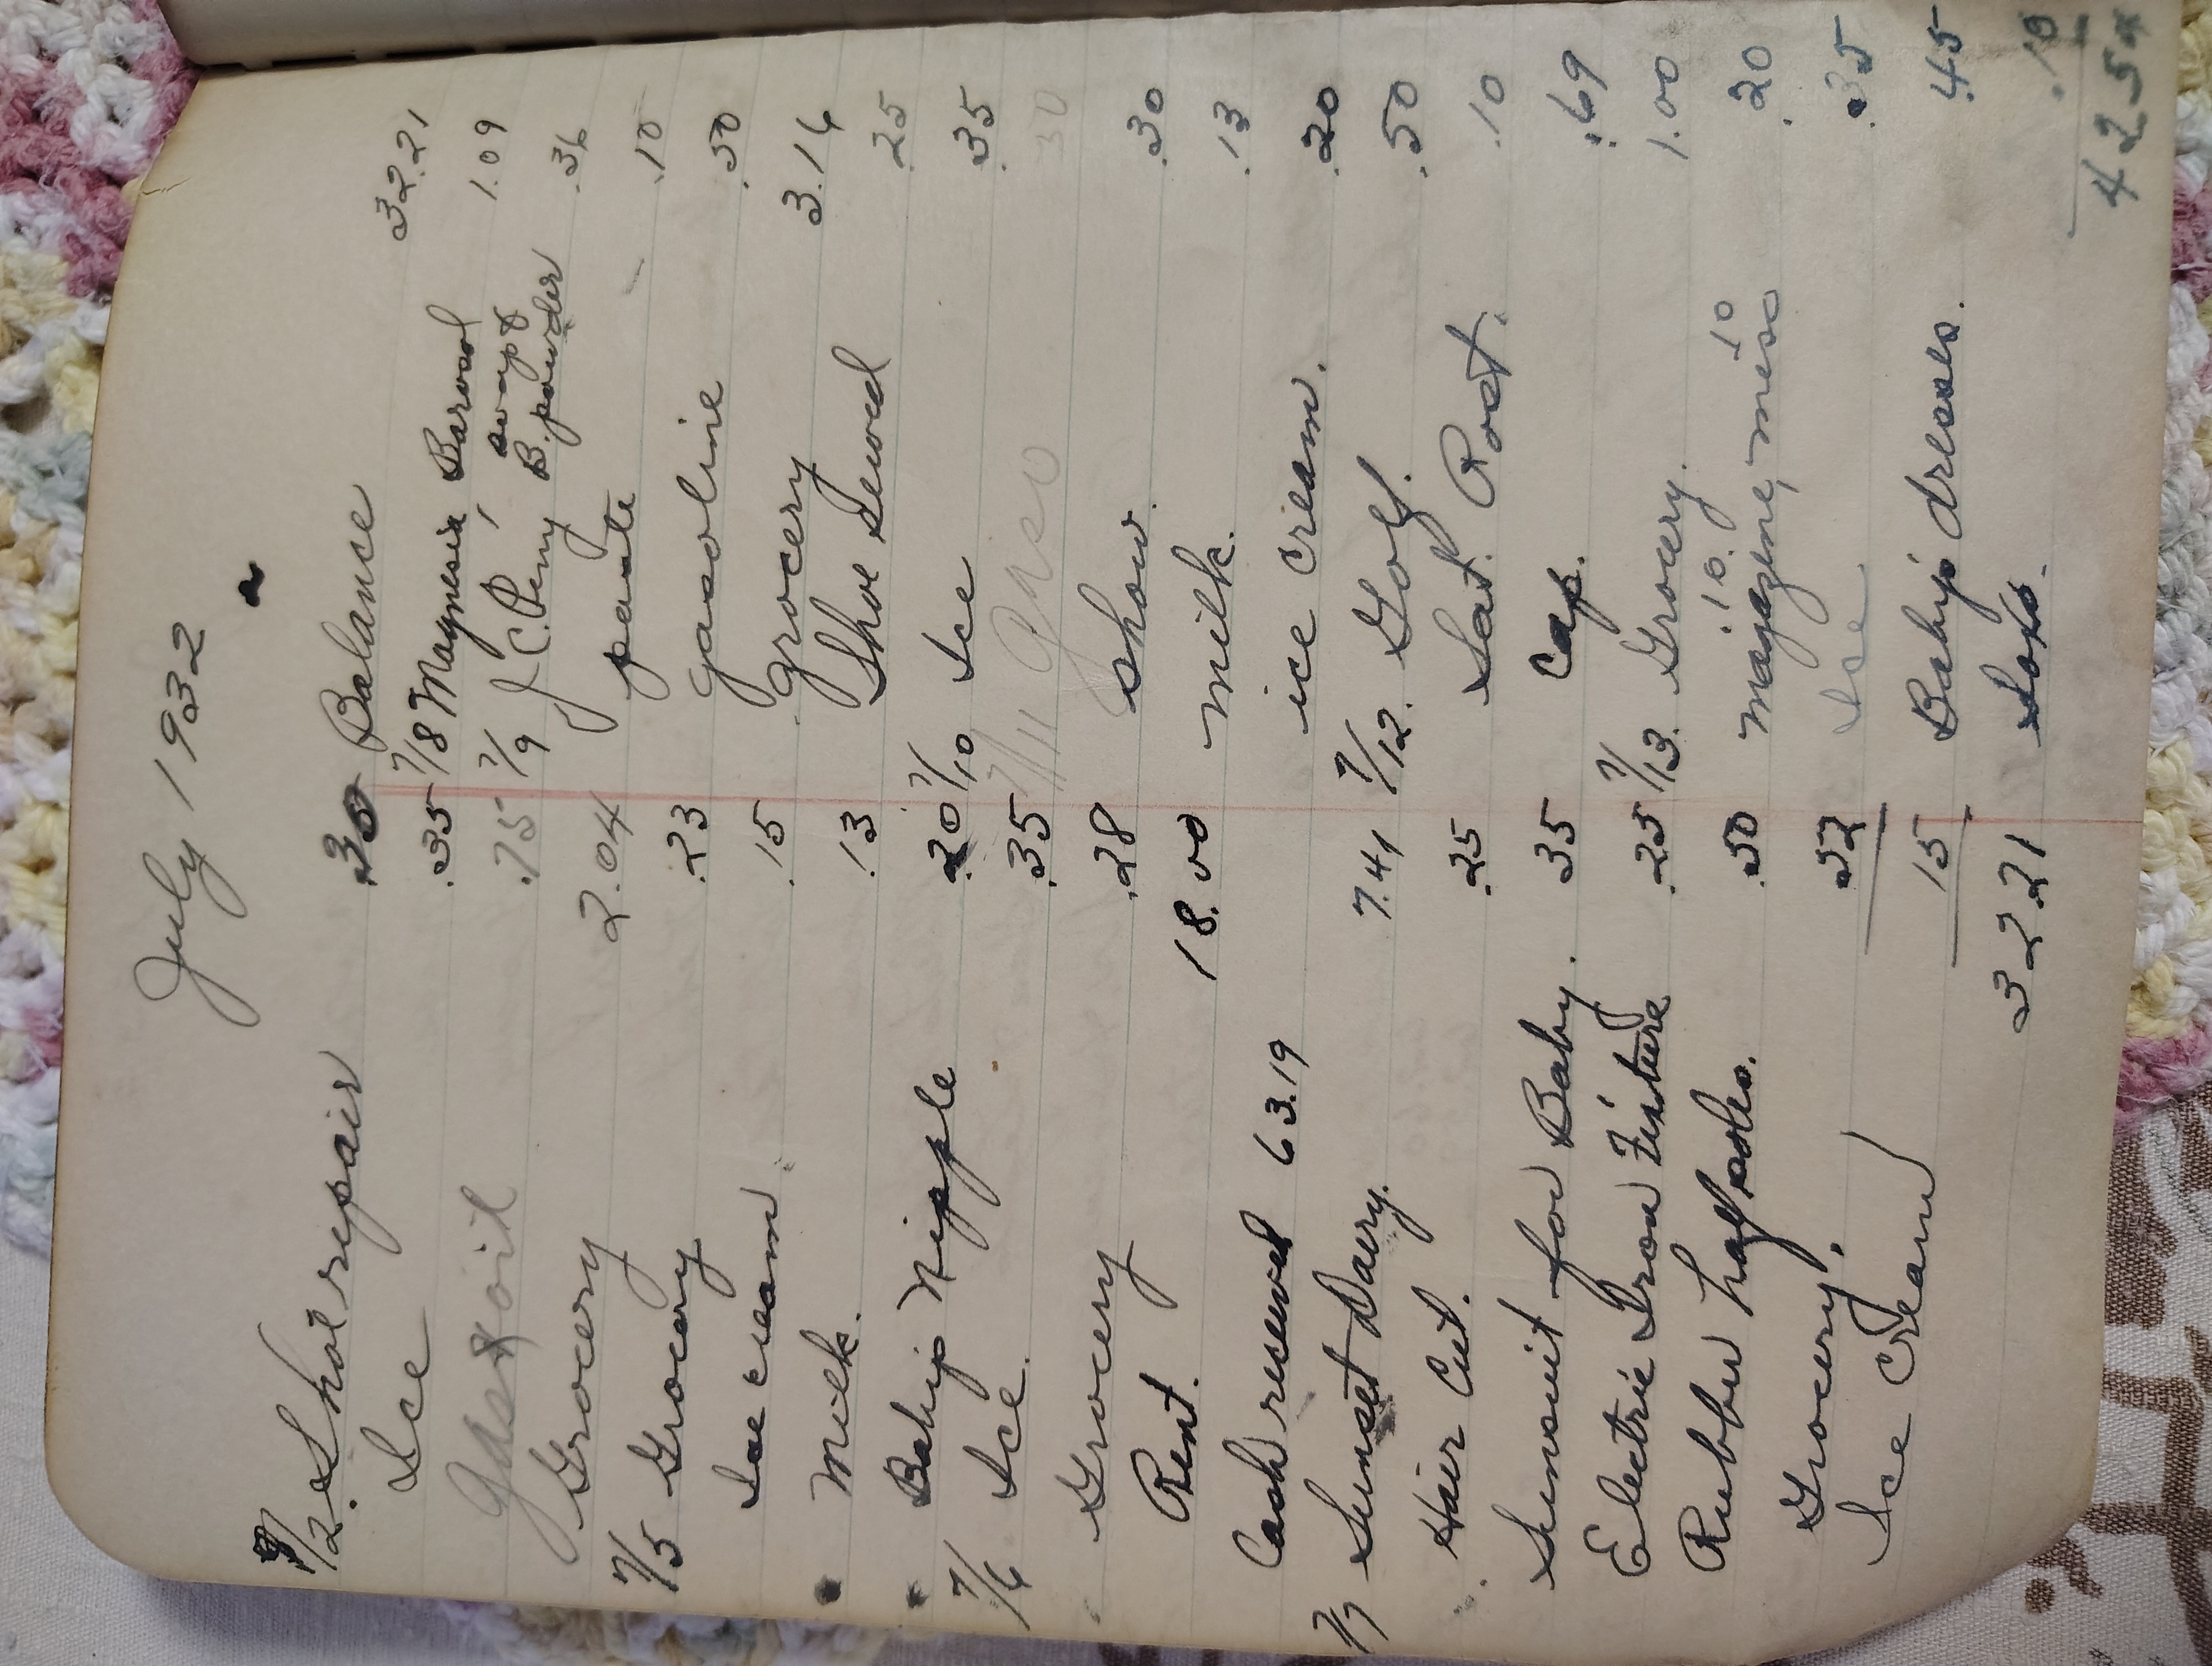 July 1932
7/2. Shoe repair .30
Ice .35
Gas & oil .75
Grocery 2.04
7/5 Grocery .23
Ice cream .15
Milk. .13
Baby Nipple .20
7/6 Ice .35
Grocery .28
Rent. 18.00
Cash received 63.19
7/7 Sunset Dairy. 7.41
Hair Cut. .25
Sunsuit for Baby. 35
Electric Iron Fixture .25
Rubber half soles. .50
Grocery. .52
Ice Cream 15
32.21
Balance 32.21
7/8 Magnesia 1.09
7/9 J C. Penny soap & B. powder .36
paste .10
gasoline .50
grocery 3.16
Shoe Sewed .25
7/10 Ice .35
7/11 30
show. .30
milk. .13
ice cream. .20
7/12. Golf. .50
Sat. Post. .10
Cap. .69
7/13. Grocery. 1.00
.10. 10
magazine, misc .20
Ice .35
Baby dresses. .45
Soxs. .10
42 54